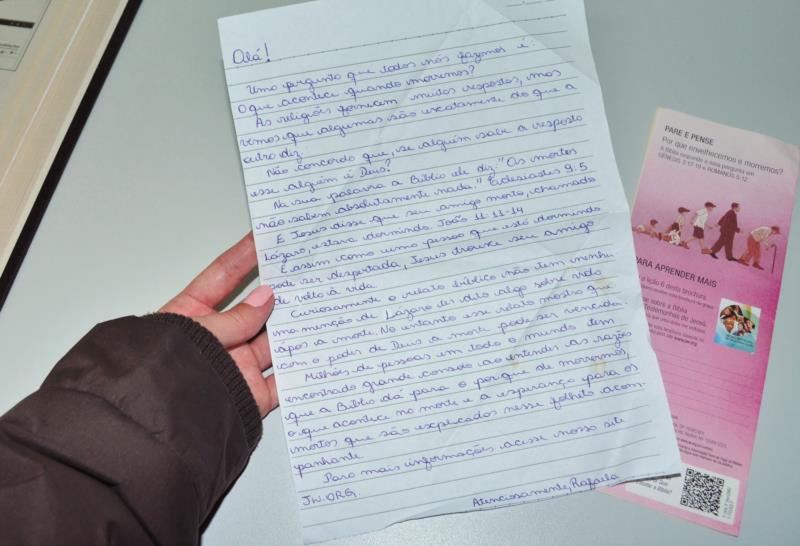 Olá!
Uma pergunta que todos nós fazemos é:
O que acontece quando morremos?
As religiões fornecem muitas respostas, mas
vemos que algumas são exatamente do que a
outra diz.
Não concorda que, se alguém sabe a resposta
esse alguém é Deus?
Na sua palavra a Bíblia ele diz: "Os mortos
não sabem absolutamente nada." Eclesiastes 9:5
E Jesus disse que seu amigo morto, chamado
Lázaro, estava dormindo. João 11:11-14
E assim como uma pessoa que está dormindo
pode ser despertada, Jesus trouxe seu amigo
de volta à vida.
Curiosamente o relato bíblico não tem nenhu
ma menção de Lázaro ter dito algo sobre vida
após a morte. No entanto esse relato mostra que
com o poder de Deus a morte pode ser vencida.
Milhões de pessoas em todo o mundo tem
encontrado grande consolo ao entender as razões
que a Bíblia dá para o por que de morrermos,
o que acontece na morte e a esperança para os
mortos que são explicados nesse folheto acom-
panhante.
Para mais informações acisse nosso site
JW.ORG.
Atenciosamente, Rafaela
PARE E PENSE
Por que envelhecemos e morremos?
A Bíblia responde a esta pergunta em
GÊNESIS 3:17-19 e ROMANOS 5:12.
PARA APRENDER MAIS
a lição 6 desta brochura
sobre a Bíblia
Testemunhas de Jeová.
a Bíblia?